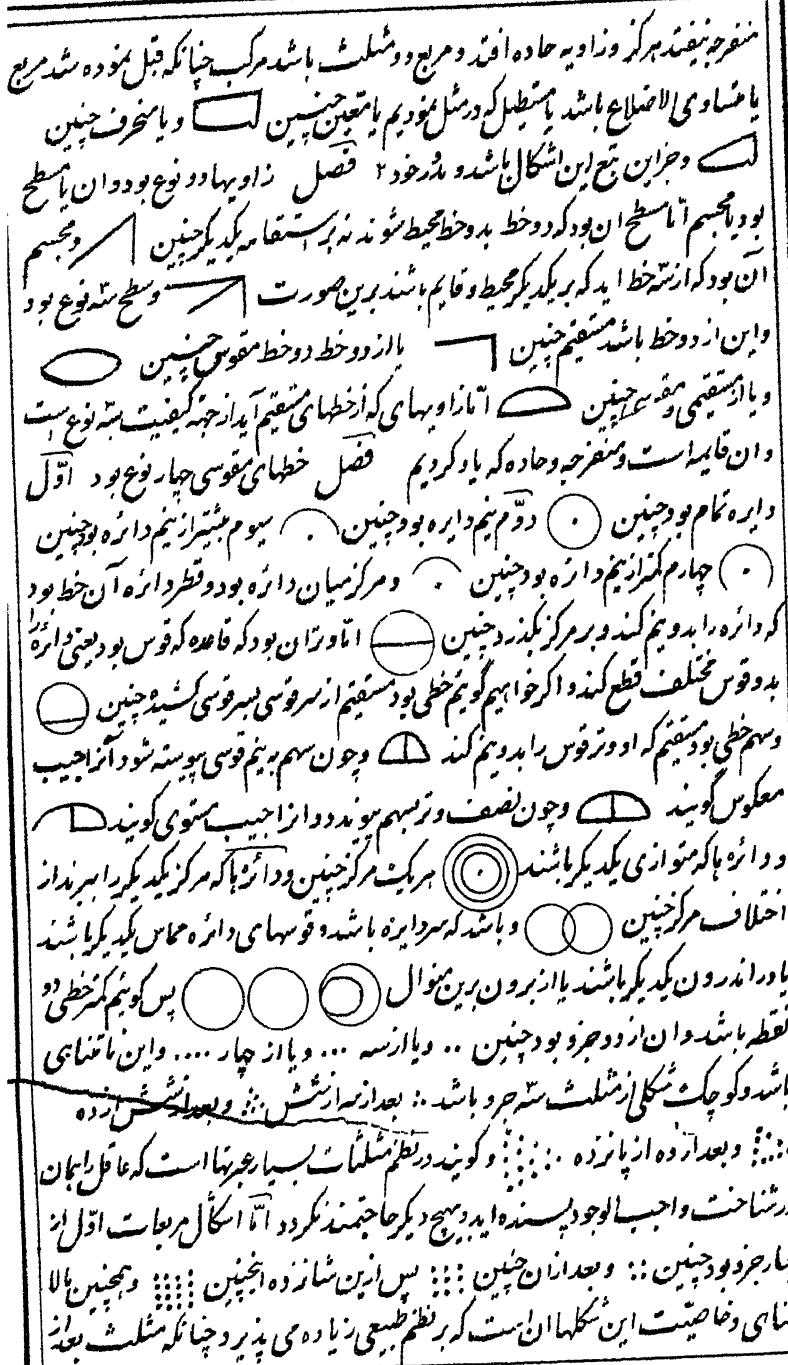 منفرجه نیفتد هرگز و زاویه حاده افتد و مربع دو مثلث باشد مرکب چنانکه قبل نموده شد مربع
یا متساوی الاضلاع باشد یا مستطیل که در مثل نمودیم یا متعین چنین و یا منحرف چنین
و جز این تبع این اشکال باشد و بدُور خود ۲ فصل زاویها دو نوع بود و ان یا مسطح
بود یا مجسم امّا مسطح ان بود که دو خط بدو خط محیط شوند نه بر استقامه یکدیکر چنین و مجسم
آن بود که از سه خط اید که بر یکدیکر محیط و قایم باشند برین صورت و سطح سه نوع بود
و این از دو خط باشد مستقیم چنین یا از دو خط دو خط مقوس چنین
و یا از مستقیمی و مقوسی چنین امّا زاویهای که از خطهای مستقیم آید از جهة کیفیت سه نوع است
و ان قایمه است و منفرجه و حاده که یاد کردیم فصل خطهای مقوسی چهار نوع بود اوّل
دایره تمام بود چنین دوّم نیم دایره بود چنین سیوم بیشتر از نیم دائره بود چنین
چهارم کمتر از نیم دائره بود چنین و مرکز میان دائره بود و قطر دائره آن خط بود
که دائره را بدو نیم کند و بر مرکز بکذرد چنین امّا وتر آن بود که قاعده که قوس بود یعنی دائره را
بدو قوس مختلف قطع کند و اکر خواهیم گوئیم خطی بود مستقیم از سر قوسی بسر قوسی کشیده چنین
و سهم خطی بود مستقیم که او وتر قوس را بدو نیم کند و چون سهم به نیم قوسی پیوسته شود آنرا جیب
معکوس گویند و چون نصف وتر بسهم پیوندد و انرا جیب مستوی کویند
و دائره ها که متوازی یکدیکر باشند هر یک مرکز چنین و دائره ها که مرکز یکدیکر را ببرند از
اختلاف مرکز چنین و باشد که سر دایره باشد و قوسهای دائره مماس یکدیکر باشند
یا در اندرون یکدیکر باشند یا از برون برین منوال پس کوئیم کمتر خطی دو
نقطه باشد و ان از دو جزو بود چنین .. و یا از سه ... و یا از چهار .... و این نا متناهی
باشد و کوچک شکلی از مثلث سه جزو باشد بعد از سه از شش و بعد از شش از ده
و بعد از ده از پانزده و کویند در نظم مثلثات بسیار عبرتها است که عاقل را بدان
در شناخت واجب الوجود پسنده اید و بهیچ دیکر حاجتمند نکردد امّا اشکال مربعات اوّل از
چهار جزو بود چنین و بعد از ان چنین پس ازین شانزده اینچنین و همچنین بالا
تناهی و خاصیّت این شکلها ان است که بر نظم طبیعی زیاده می پذیرد و چنانکه مثلث بعد از